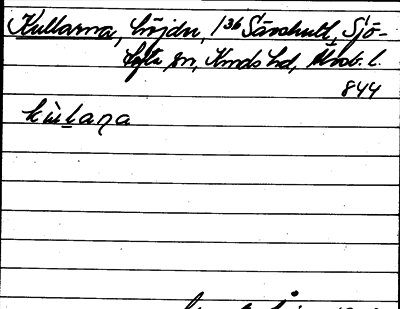 Kullarna, höjder, 1³⁶ Sävshult, Sjö-
tofta sn, Kinds hd, Älvsb. l.
844
kùlaṇa